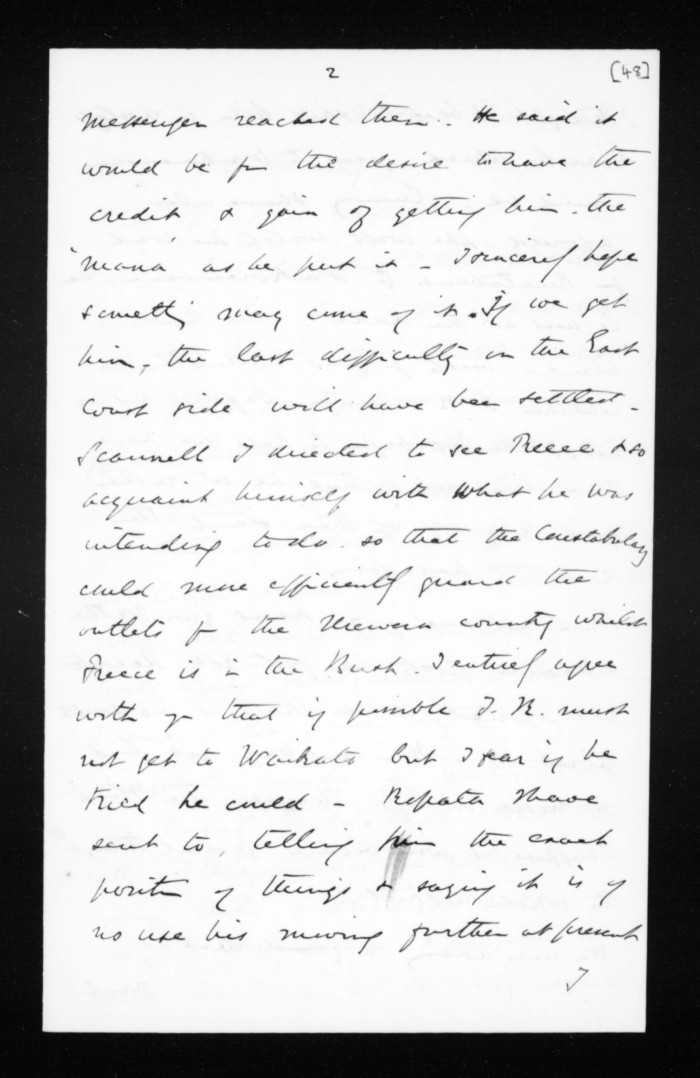 2
[48]
messenger reached them. He said it
would be for the desire to have the
credit & gain of getting him. the
"mana" as he put it - I sincerely hope
somethg may come of it. If we get
him, the last difficulty on the East
Coast side will have been settled -
Scannell I directed to see Preece & so
acquaint himself with what he was
intending to do. so that the Constabulary
could more efficiently guard the
outlets f the Urewera country whilst
Preece is in the Bush. I entirely agree
with yr that if possible T. K. must
not get to Waikato but I fear if he
tried he could - Ropata I have
sent to, telling him the exact
position of things & saying it is of
no use his moving further at present
I